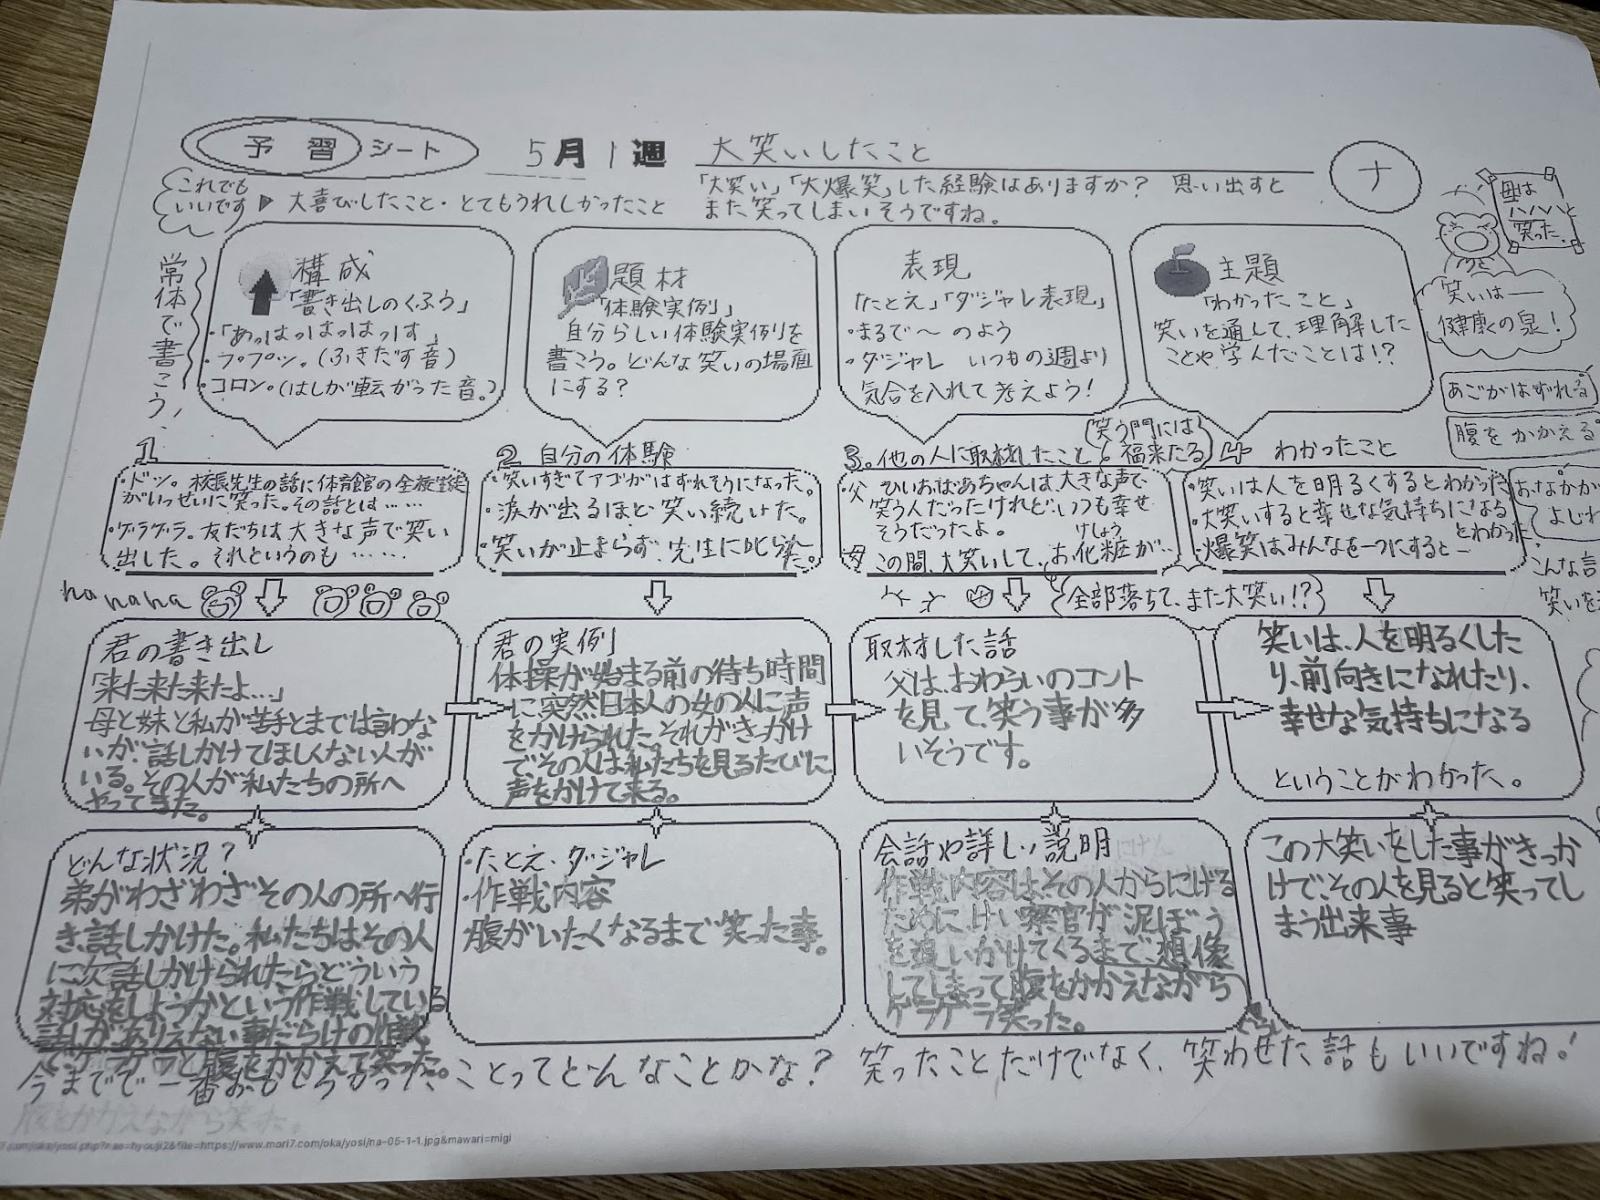 予習シート
5月1週 大笑いしたこと
ナ
これでも
いいです
▶大喜びしたこと・とてもうれしかったこと
「大笑い」「大爆笑」した経験はありますか? 思い出すと
また笑ってしまいそうですね。
常体で書こう、
構成
「書き出しのくふう」
・「あっはっはっはっす」
・フフプッ。(ふきだす音)
・コロン。(はしが転がった音。)
題材
「体験実例」
自分らしい体験実例を
書こう。どんな笑いの場面
にする?
表現
「たとえ」「ダジャレ表現」
・まるで〜のよう
・ダジャレ いつもの週より
気合を入れて考えよう!
主題
「わかったこと」
笑いを通して、理解した
ことや学んだことは!?
母は
ハハハハと
笑った。
笑いは―
健康の泉!
あごがはずれる
腹をかかえる
おなかが
よじれ
こんな言
笑いを
1
・ドッ。校長先生の話に体育館の全校生徒
がいっせいに笑った。その話とは……
・ゲラゲラ。友だちは大きな声で笑い
出した。それというのも……
2 自分の体験
・笑いすぎてアゴがはずれそうになった。
・涙が出るほど笑い続けた。
・笑いが止まらず、先生に叱られた。
3。他の人に取材したこと
笑う門には
福来たる
・父 ひいおばあちゃんは、大きな声で
笑う人だったけれど、いつも幸せ
そうだったよ。
けしょう
母 この間、大笑いして、お化粧が…
全部落ちて、また大笑い!?
4 わかったこと
・笑いは人を明るくするとわかった
・大笑いすると幸せな気持ちになる
とわかった
・爆笑はみんなを一つにすると―
hahaha
君の書き出し
「来た来た来たよ…」
母と妹と私が苦手とまでは言わな
いが、話しかけてほしくない人が
いる。その人が私たちの所へ
やってきた。
君の実例
体操が始まる前の待ち時間
に突然日本人の女の人に声
をかけられた。それがきっかけ
で、その人は私たちを見るたびに
声をかけて来る。
取材した話
父は、おわらいのコント
を見て、笑う事が多
いそうです。
笑いは、人を明るくした
り、前向きになれたり、
幸せな気持ちになる
ということがわかった。
どんな状況?
弟がわざわざその人の所へ行
き、話しかけた。私たちはその人
に次話しかけられたらどういう
対応をしようかという作戦している
話しがありえない事だらけの作戦
でゲラゲラと腹をかかえて笑った。
・たとえ・ダジャレ
・作戦内容
腹がいたくなるまで笑った事。
会話や詳しい説明
作戦内容は、その人からにげる
ために、けい察官が泥ぼう
を追いかけてくるまで、想像
してしまって腹をかかえながら
ゲラゲラ笑った。
この大笑いをした事がきっか
けで、その人を見ると笑ってし
まう出来事
今までで一番おもしろかったことってどんなことかな? 笑ったことだけでなく、笑わせた話もいいですね!
腹をかかえながら笑った。